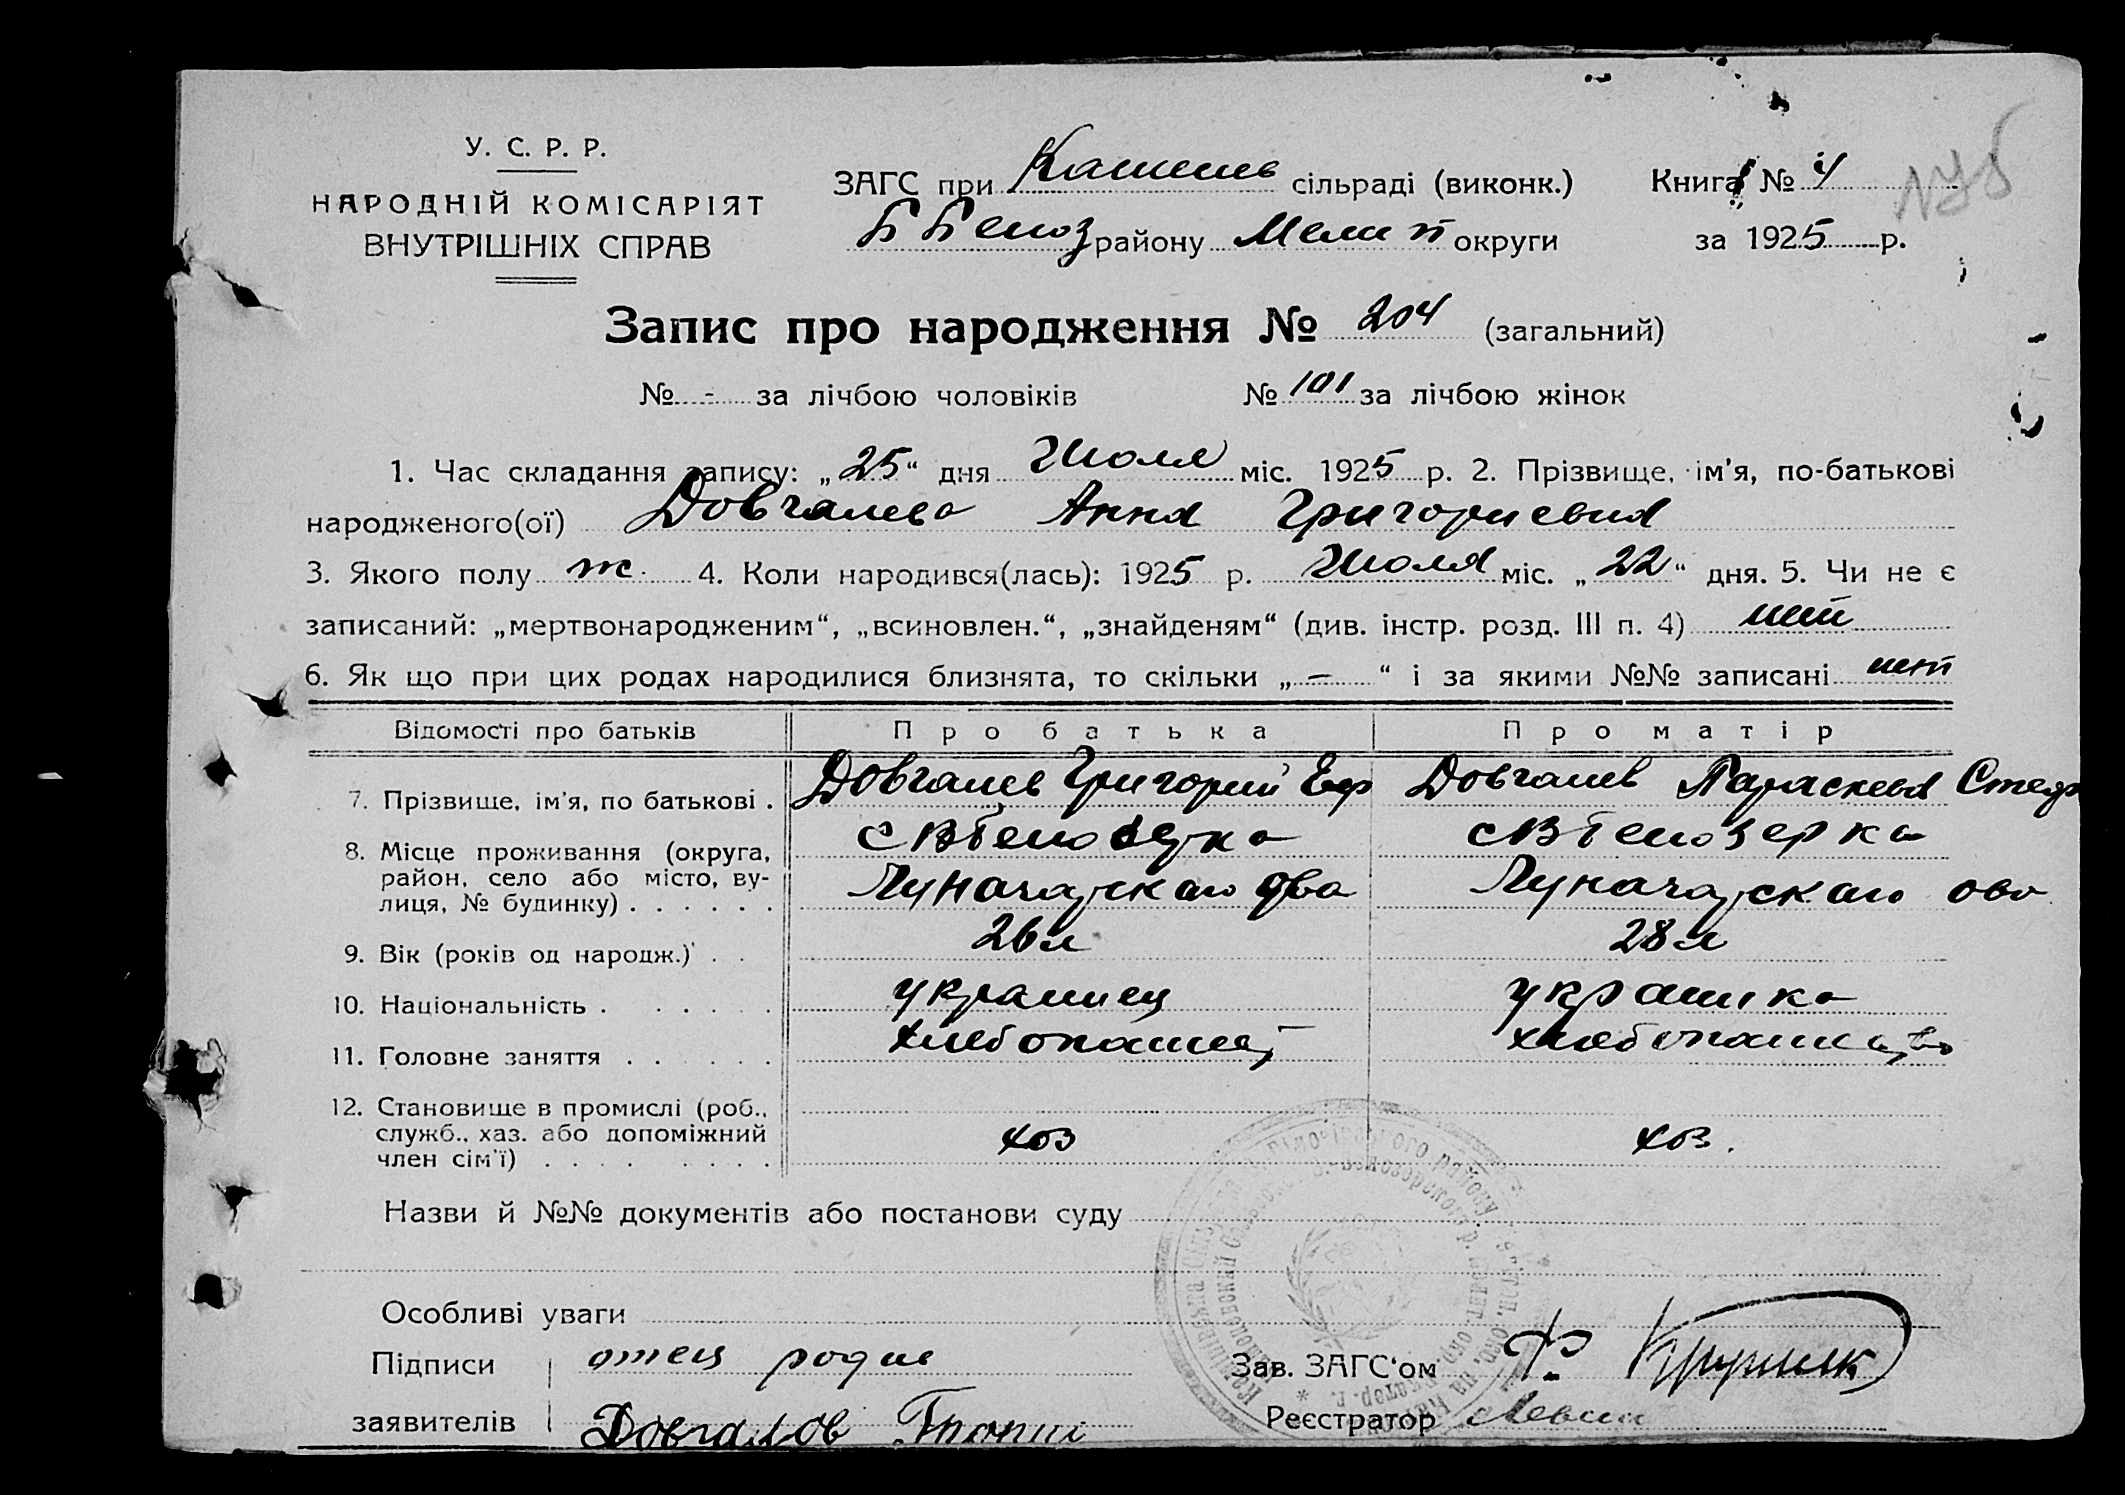 У. С. Р. Р.
НАРОДНІЙ КОМІСАРІЯТ
ВНУТРІШНІХ СПРАВ
ЗАГС при сільраді (виконк.)
району Мелит округи
Книга № 4
за 1925 р.
Запис про народження № 204 (загальний)
№ - за лічбою чоловіків № 101 за лічбою жінок
1. Час складання запису: „25“ дня Июля міс. 1925 р. 2. Прізвище, ім'я, по-батькові
народженого(ої) Довгалева Анна Григориевна
3. Якого полу ж. 4. Коли народився(лась): 1925 р. Июля міс. „22“ дня. 5. Чи не є
записаний: „мертвонародженим“, „всиновлен.“, „знайденям“ (див. інстр. розд. III п. 4) нет
6. Як що при цих родах народилися близнята, то скільки „—“ і за якими №№ записані нет
Відомості про батьків Про батька Про матір
7. Прізвище, ім'я, по батькові . Довгалев Григорий Еф Довгалев Параскева Стеф
8. Місце проживання (округа, с ВБелозерка с ВБелозерка
район, село або місто, ву-
лиця, № будинку) . . . . . . Луначарскаго Луначарскаго
9. Вік (років од народж.) . . 26 л 28 л
10. Національність . . . . . . украинец украинка
11. Головне заняття . . . . . хлебопашец хлебопашество
12. Становище в промислі (роб.,
служб., хаз. або допоміжний хоз хоз.
член сім'ї) . . . . . . . .
Назви й №№ документів або постанови суду
Особливі уваги
Підписи отец
заявителів Довгалов
Зав. ЗАГС'ом
Реєстратор